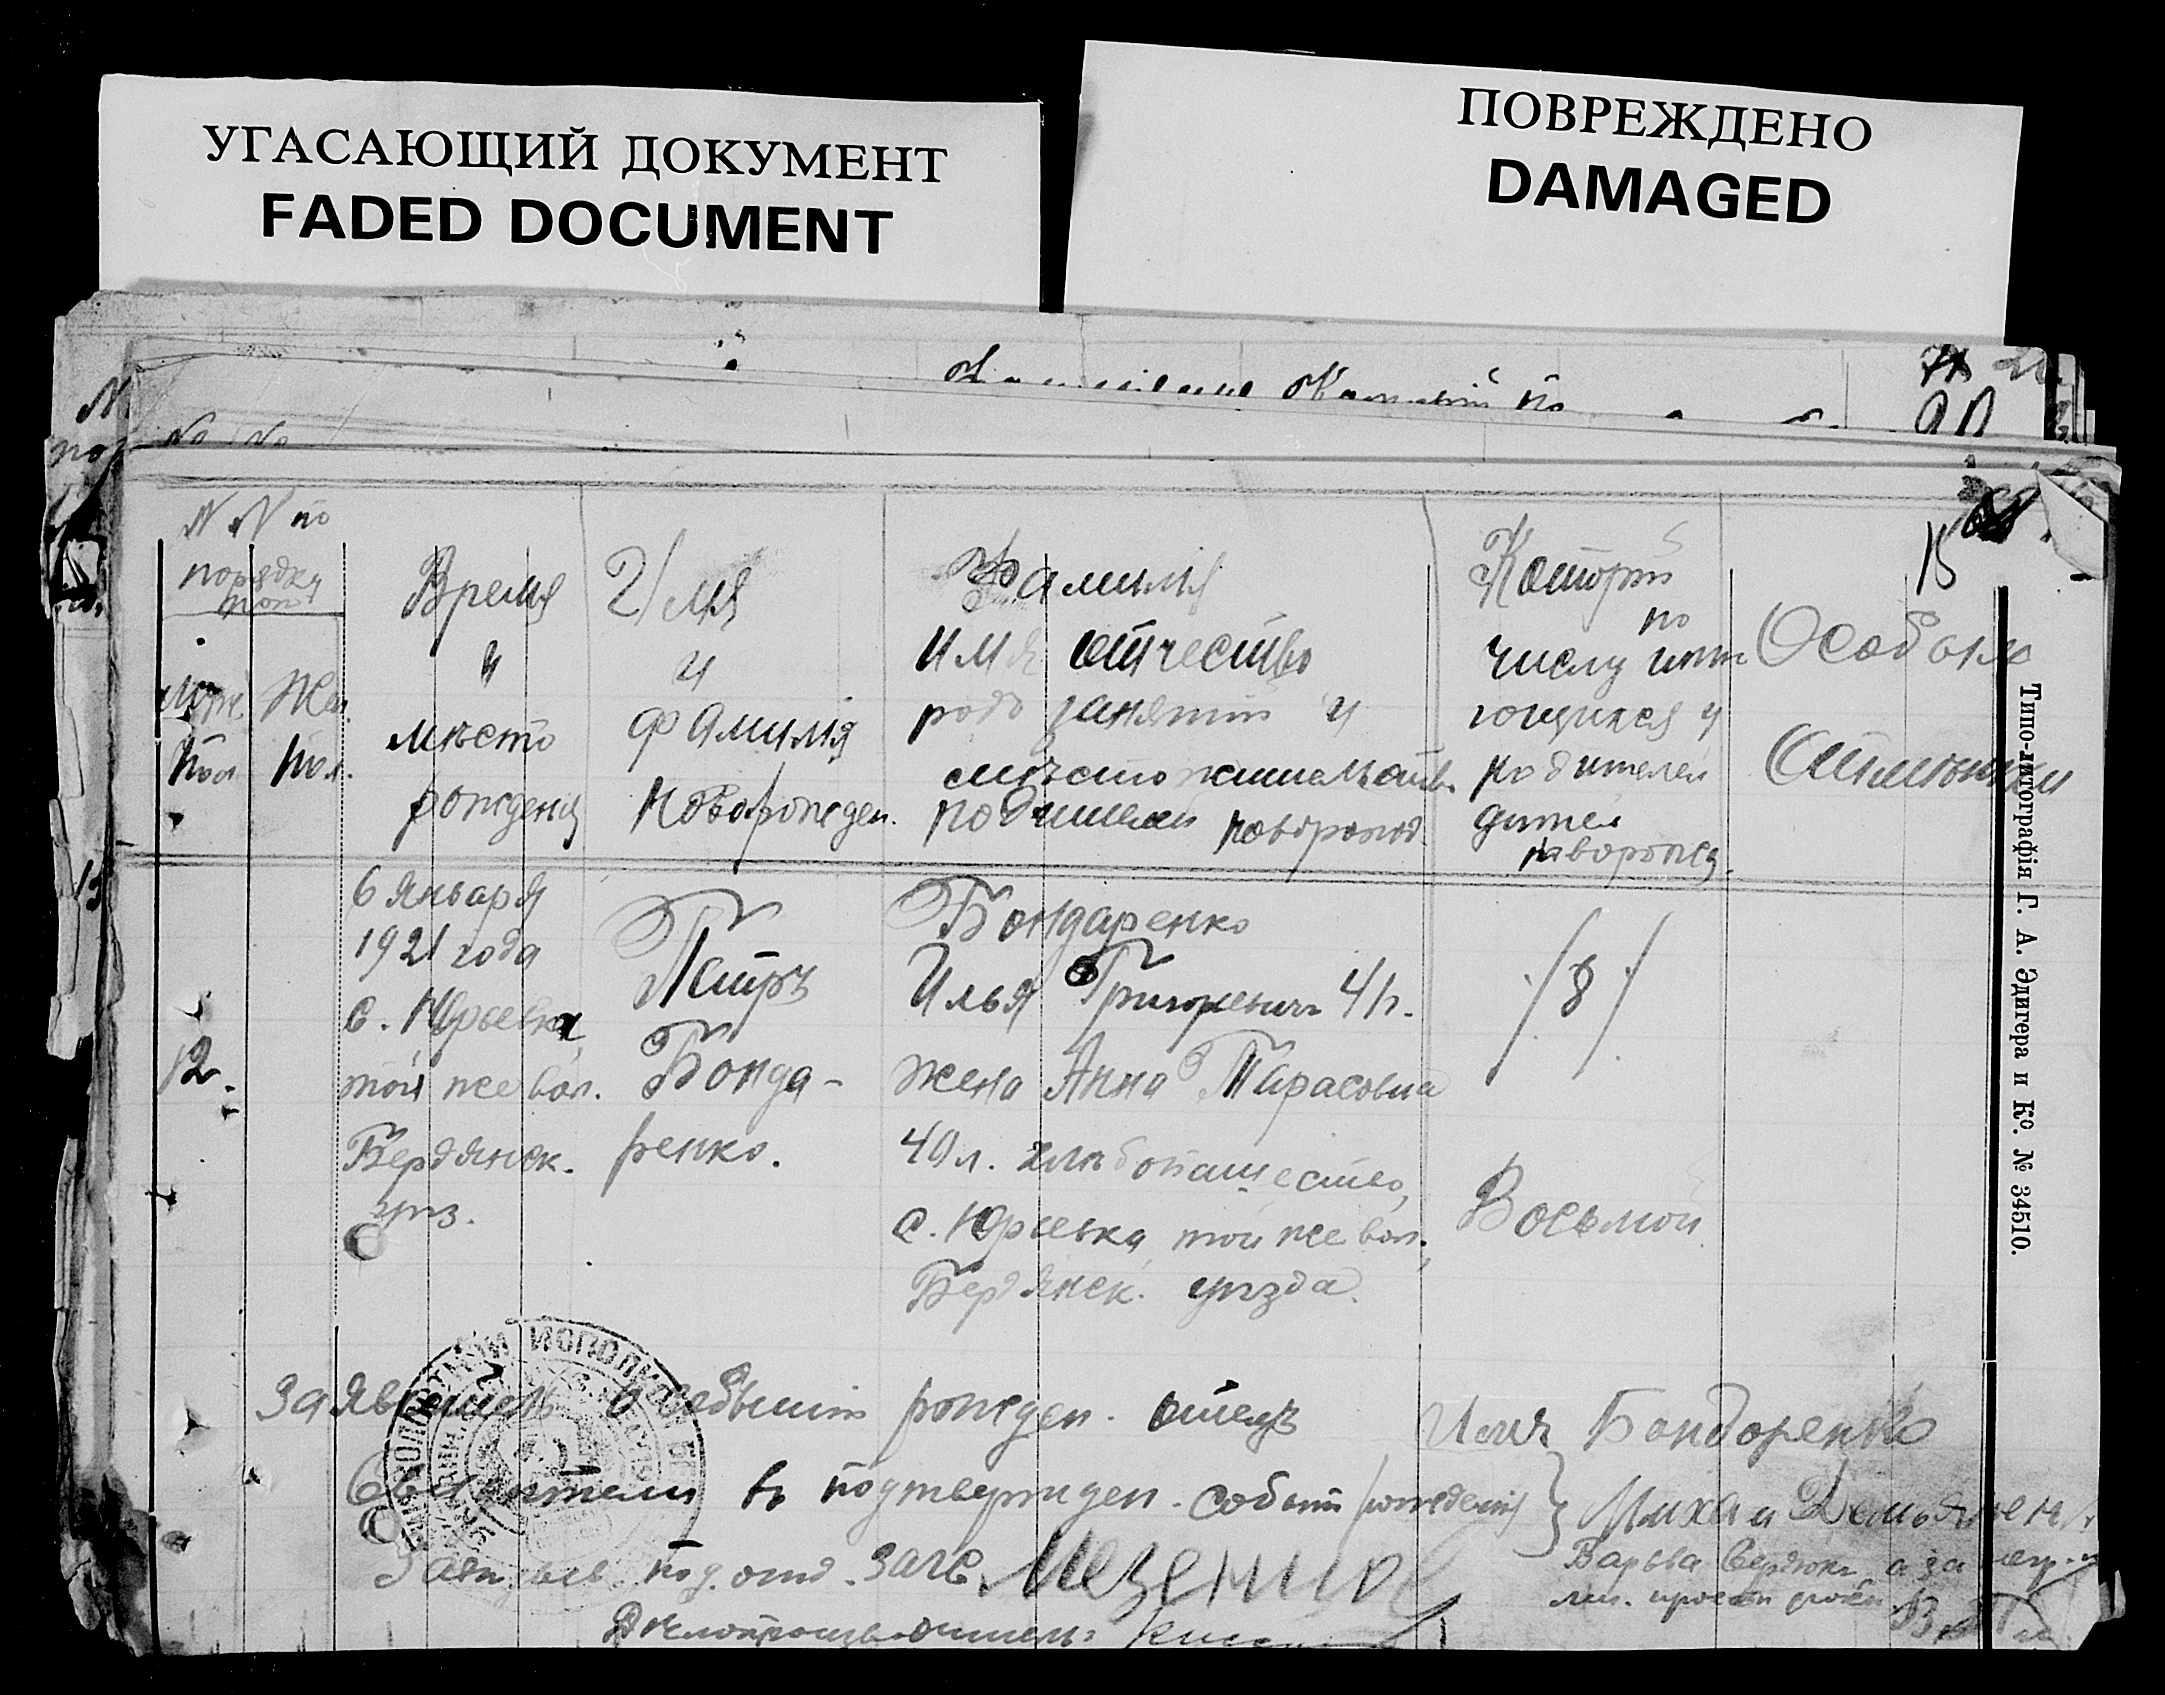 УГАСАЮЩИЙ ДОКУМЕНТ
FADED DOCUMENT
ПОВРЕЖДЕНО
DAMAGED
№ №
N N по
порядку
Муж. Жен.
пол пол.
Время
и
мѣсто
рожденія
Имя
и
фамилія
новорожден.
Фамилія
имя отчество
родъ занятій и
мѣсто жительства
родителей новорожд.
Который
по
числу имѣ-
ющихся у
родителей
дѣтей
новорожд.
15
Особыя
Отмѣтки
12.
6 Января
1921 года
с. Юрьевка,
той же вол.
Бердянск.
уѣз.
Петръ
Бонда-
ренко.
Бондаренко
Илья Григорьевичъ 41 л.
жена Анна Тарасовна
40 л. хлѣбопашество,
с. Юрьевка, той же вол.,
Бердянск. уѣзда.
/8/
Восьмой
Заявитель о событіи рожден. отецъ Илья Бондоренко
Свидѣтели въ подтвержден. событія рожденія } Михаил
Варвара а за
Завѣдыв. под. отд. загс
Дѣлопроизводитель:
Типо-литографія Г. А. Эдигера и Ко. № 34510.